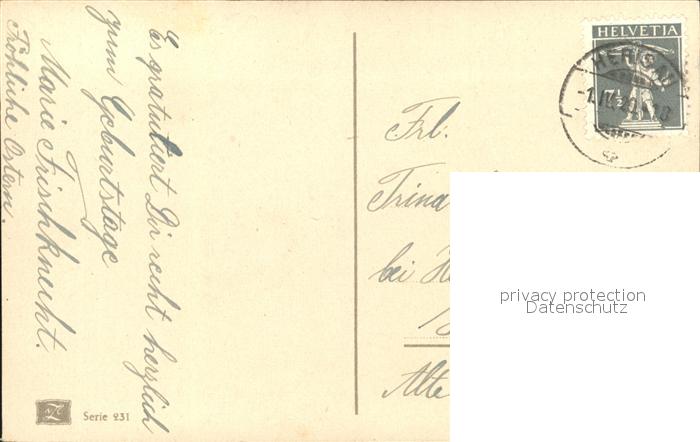 Es gratuliert Dir recht herzlich
zum Geburtstage
Marie Frischknecht.
Fröhliche Ostern.
Serie 231
HELVETIA
HERISAU
7½
Frl.
Trina
bei
Alte
privacy protection
Datenschutz